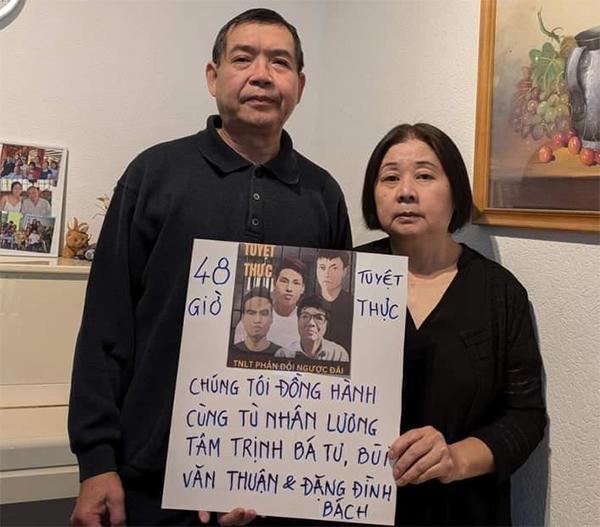 48
GIỜ
TUYỆT
THỰC
TUYỆT
THỰC
TNLT PHẢN ĐỐI NGƯỢC ĐÃI
CHÚNG TÔI ĐỒNG HÀNH
CÙNG TÙ NHÂN LƯƠNG
TÂM TRỊNH BÁ TƯ, BÙI
VĂN THUẬN & ĐẶNG ĐÌNH
BÁCH